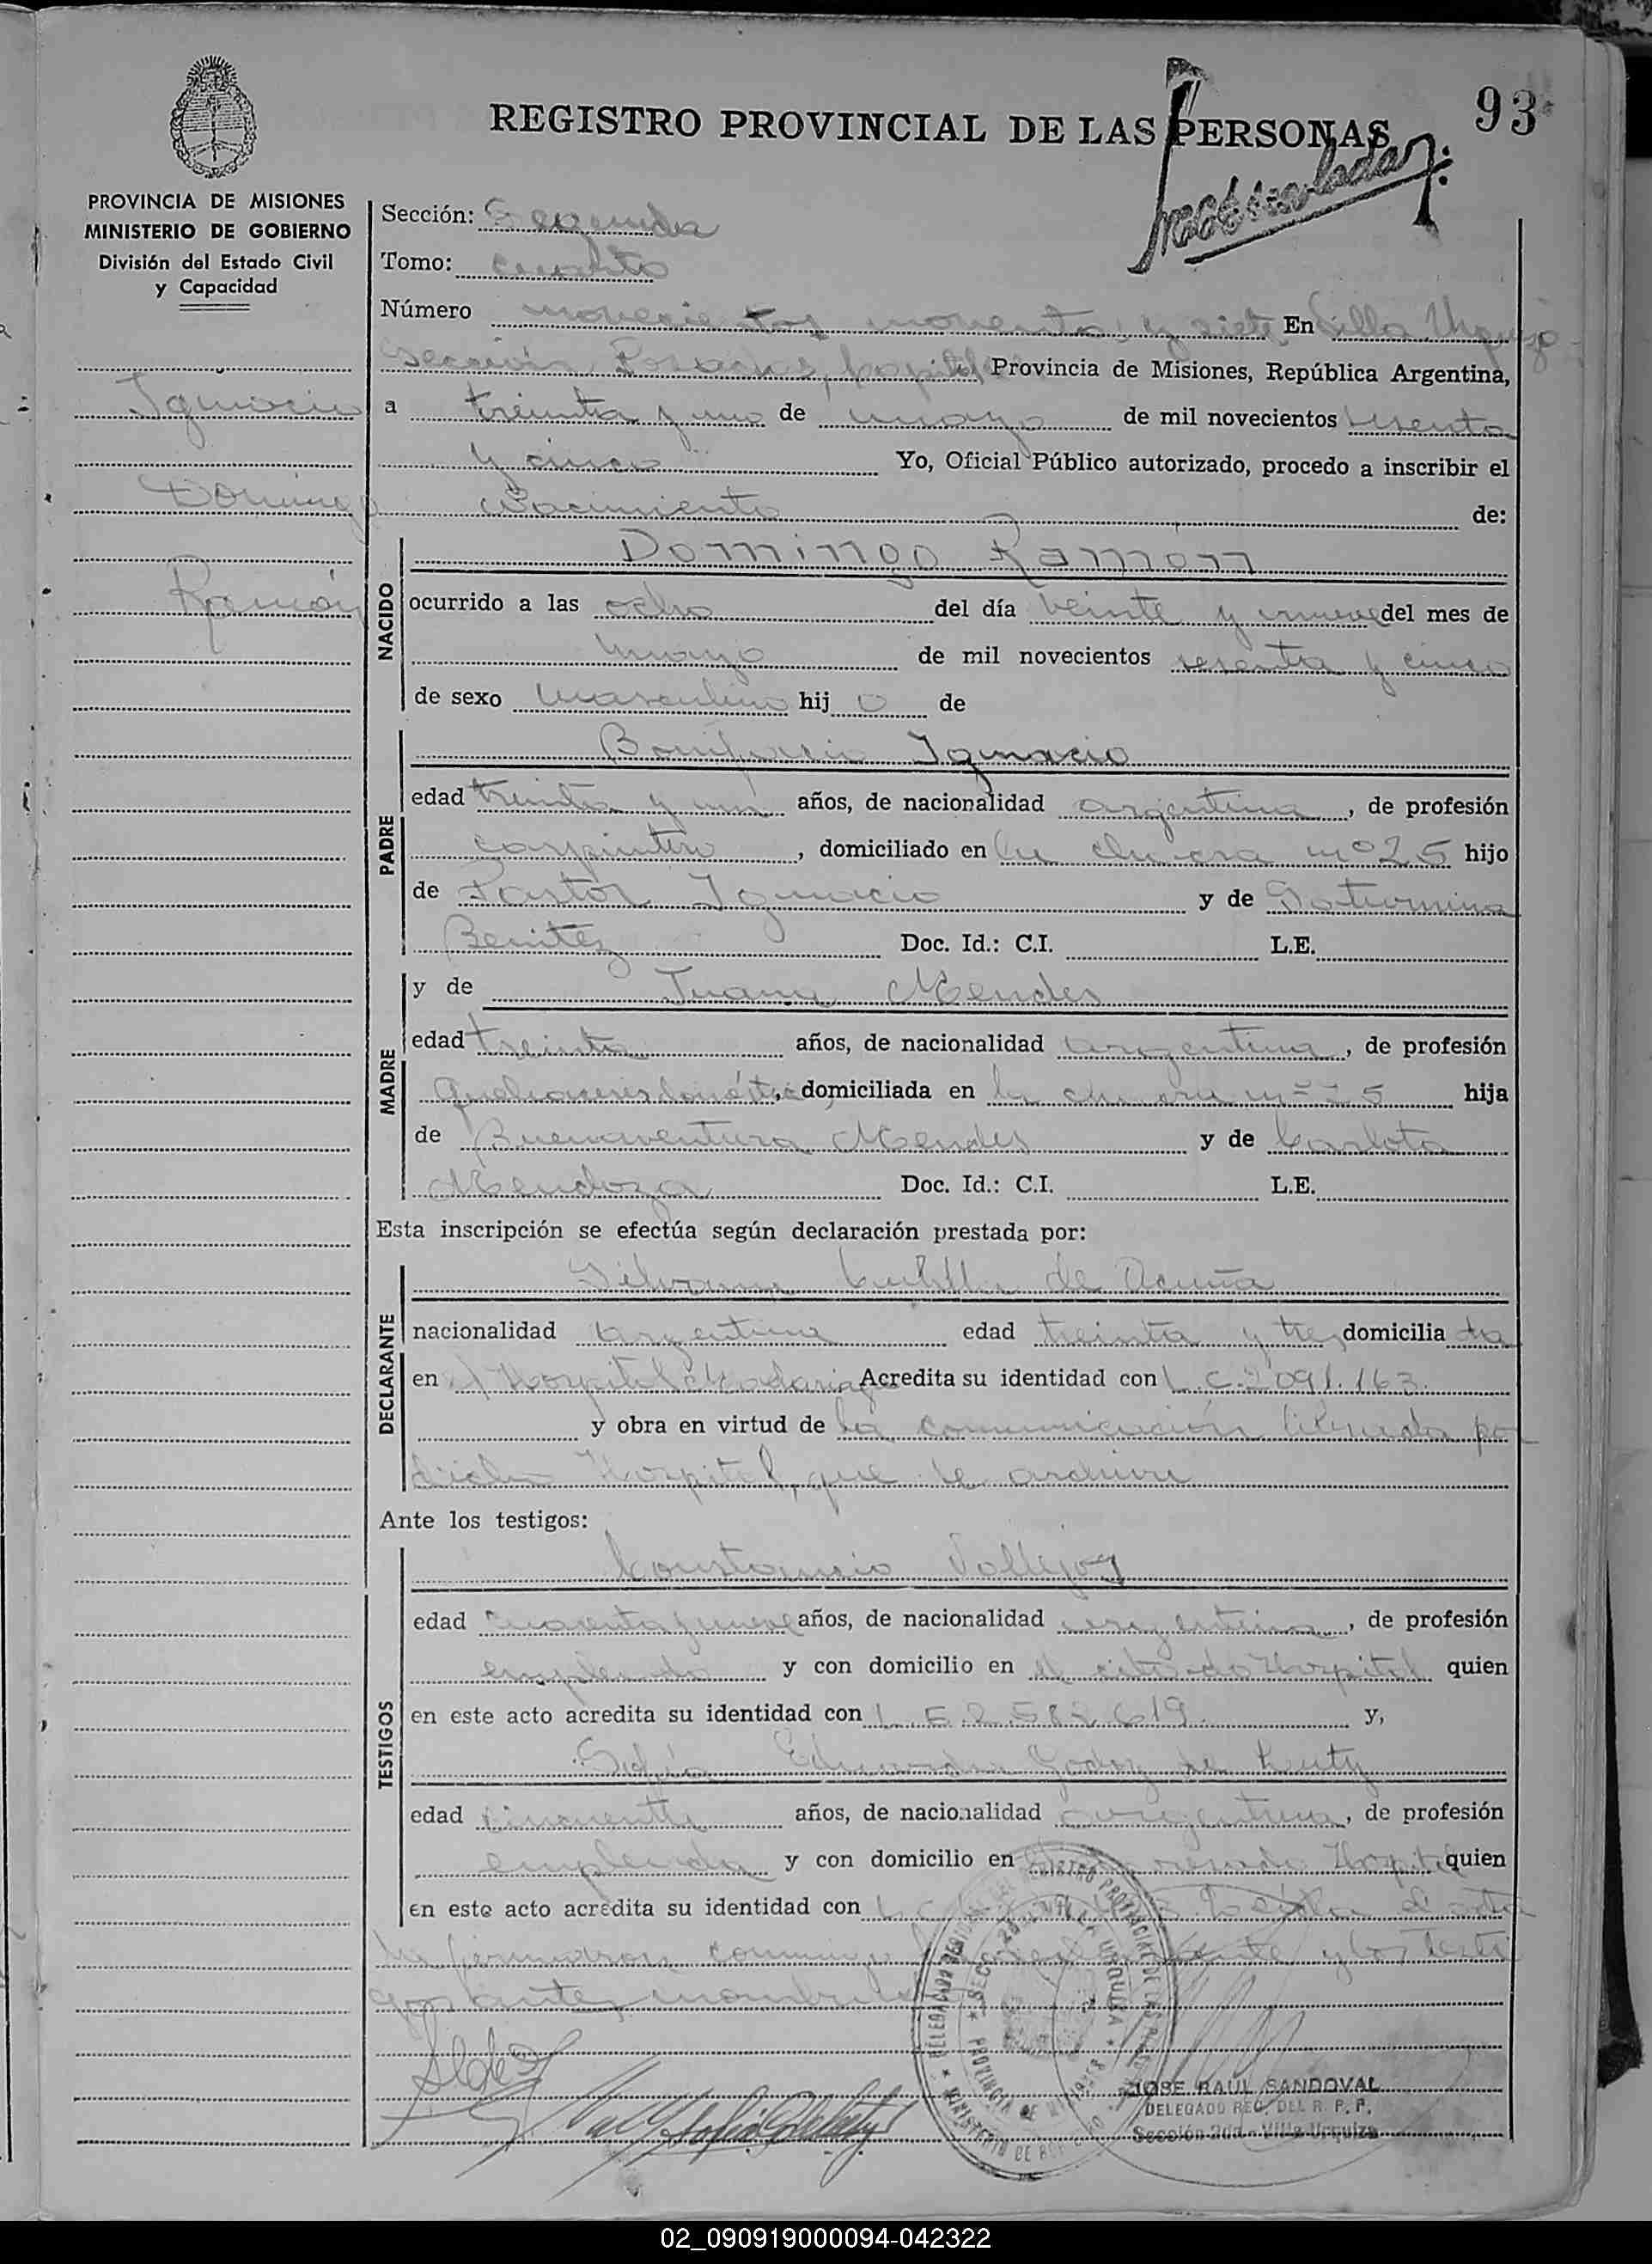 93
REGISTRO PROVINCIAL DE LAS PERSONAS
PROVINCIA DE MISIONES
MINISTERIO DE GOBIERNO
División del Estado Civil
y Capacidad
Ignacio
Domingo
Ramón
Sección: Segunda
Tomo: cuarto
Número novecientos noventa y siete En Villa Urquiza
sección Posadas, Capital Provincia de Misiones, República Argentina,
a treinta y uno de mayo de mil novecientos sesenta
y cinco Yo, Oficial Público autorizado, procedo a inscribir el
Nacimiento de:
NACIDO
Domingo Ramón
ocurrido a las ocho del día veinte y nueve del mes de
mayo de mil novecientos sesenta y cinco
de sexo masculino hijo de
PADRE
Bonifacio Ignacio
edad treinta y un años, de nacionalidad argentina, de profesión
carpintero, domiciliado en la chacra nº 25 hijo
de Pastor Ignacio y de Saturnina
Benitez Doc. Id.: C.I. L.E.
MADRE
y de Juana Mendes
edad treinta años, de nacionalidad argentina, de profesión
domiciliada en la chacra nº 25 hija
de Buenaventura Mendes y de Carlota
Mendoza Doc. Id.: C.I. L.E.
Esta inscripción se efectúa según declaración prestada por:
DECLARANTE
de Acuña
nacionalidad argentina edad treinta y tres domiciliada
en el Hospital Madariaga Acredita su identidad con L.C. 2.091.163.
y obra en virtud de la comunicación librada por
dicho Hospital, que se archiva
Ante los testigos:
TESTIGOS
Constancio Vallejos
edad cuarenta y nueve años, de nacionalidad argentina, de profesión
empleado y con domicilio en el citado Hospital quien
en este acto acredita su identidad con L.E. 2.582.619. y,
Sofía Eduarda Godoy de
edad cincuenta años, de nacionalidad argentina, de profesión
empleada y con domicilio en Hospital quien
en este acto acredita su identidad con L.C. el acta
la firmaron conmigo y los testi
gos antes nombrados
JOSE RAUL SANDOVAL
DELEGADO REG. DEL R. P. P.
Sección 2da - Villa Urquiza
02_090919000094-042322